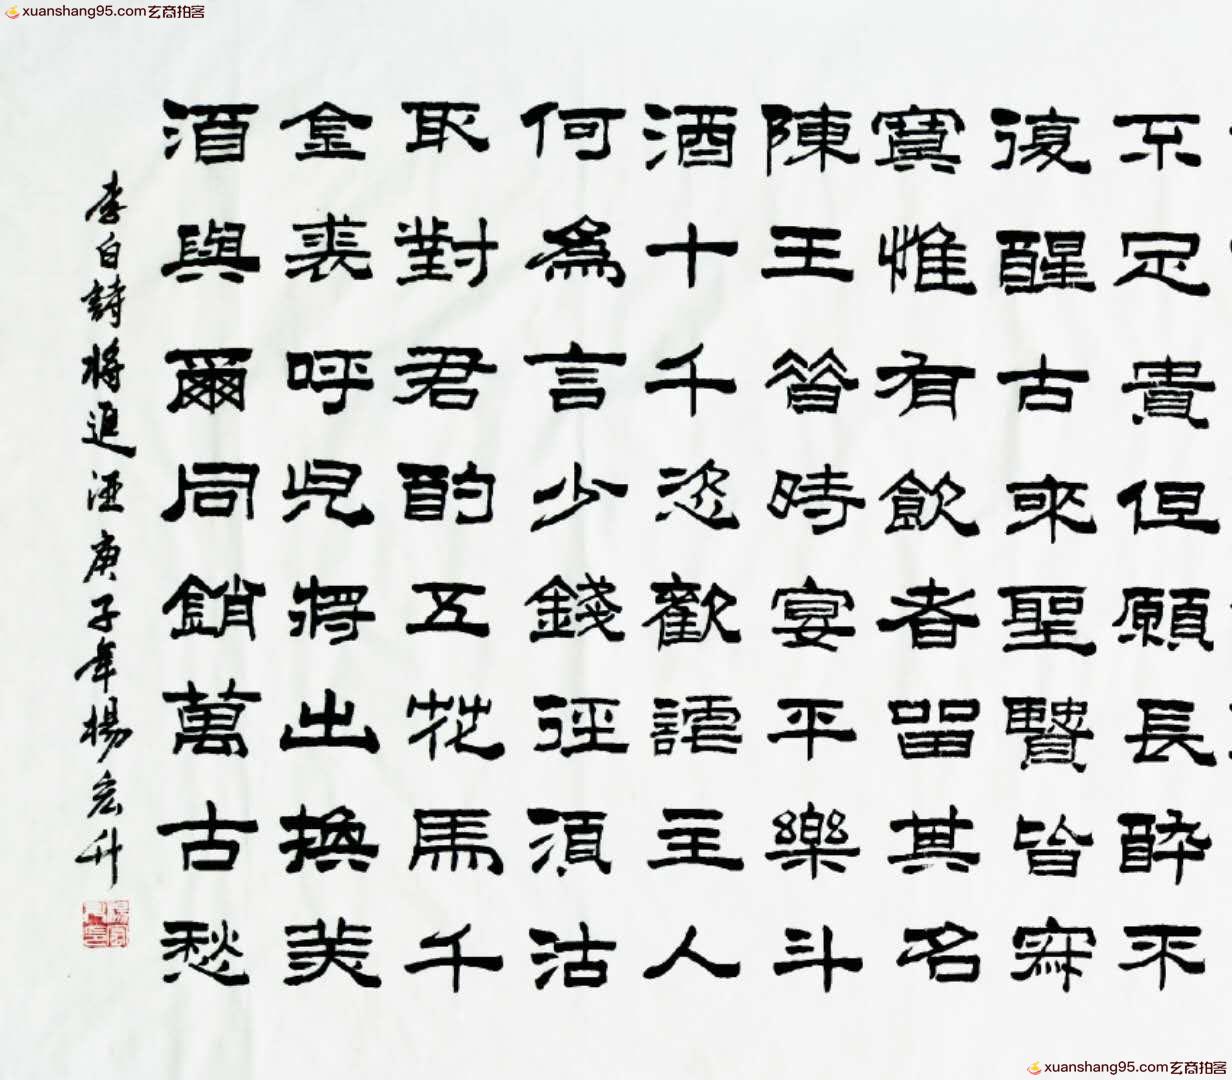 xuanshang95.com玄商拍客
不足貴但願長醉不
復醒古來聖賢皆寂
寞惟有飲者留其名
陳王昔時宴平樂斗
酒十千恣歡謔主人
何為言少錢徑須沽
取對君酌五花馬千
金裘呼兒將出換美
酒與爾同銷萬古愁
李白詩將進酒庚子年楊宏升
xuanshang95.com玄商拍客